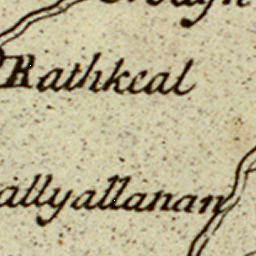 Rathkeal
allyallanan